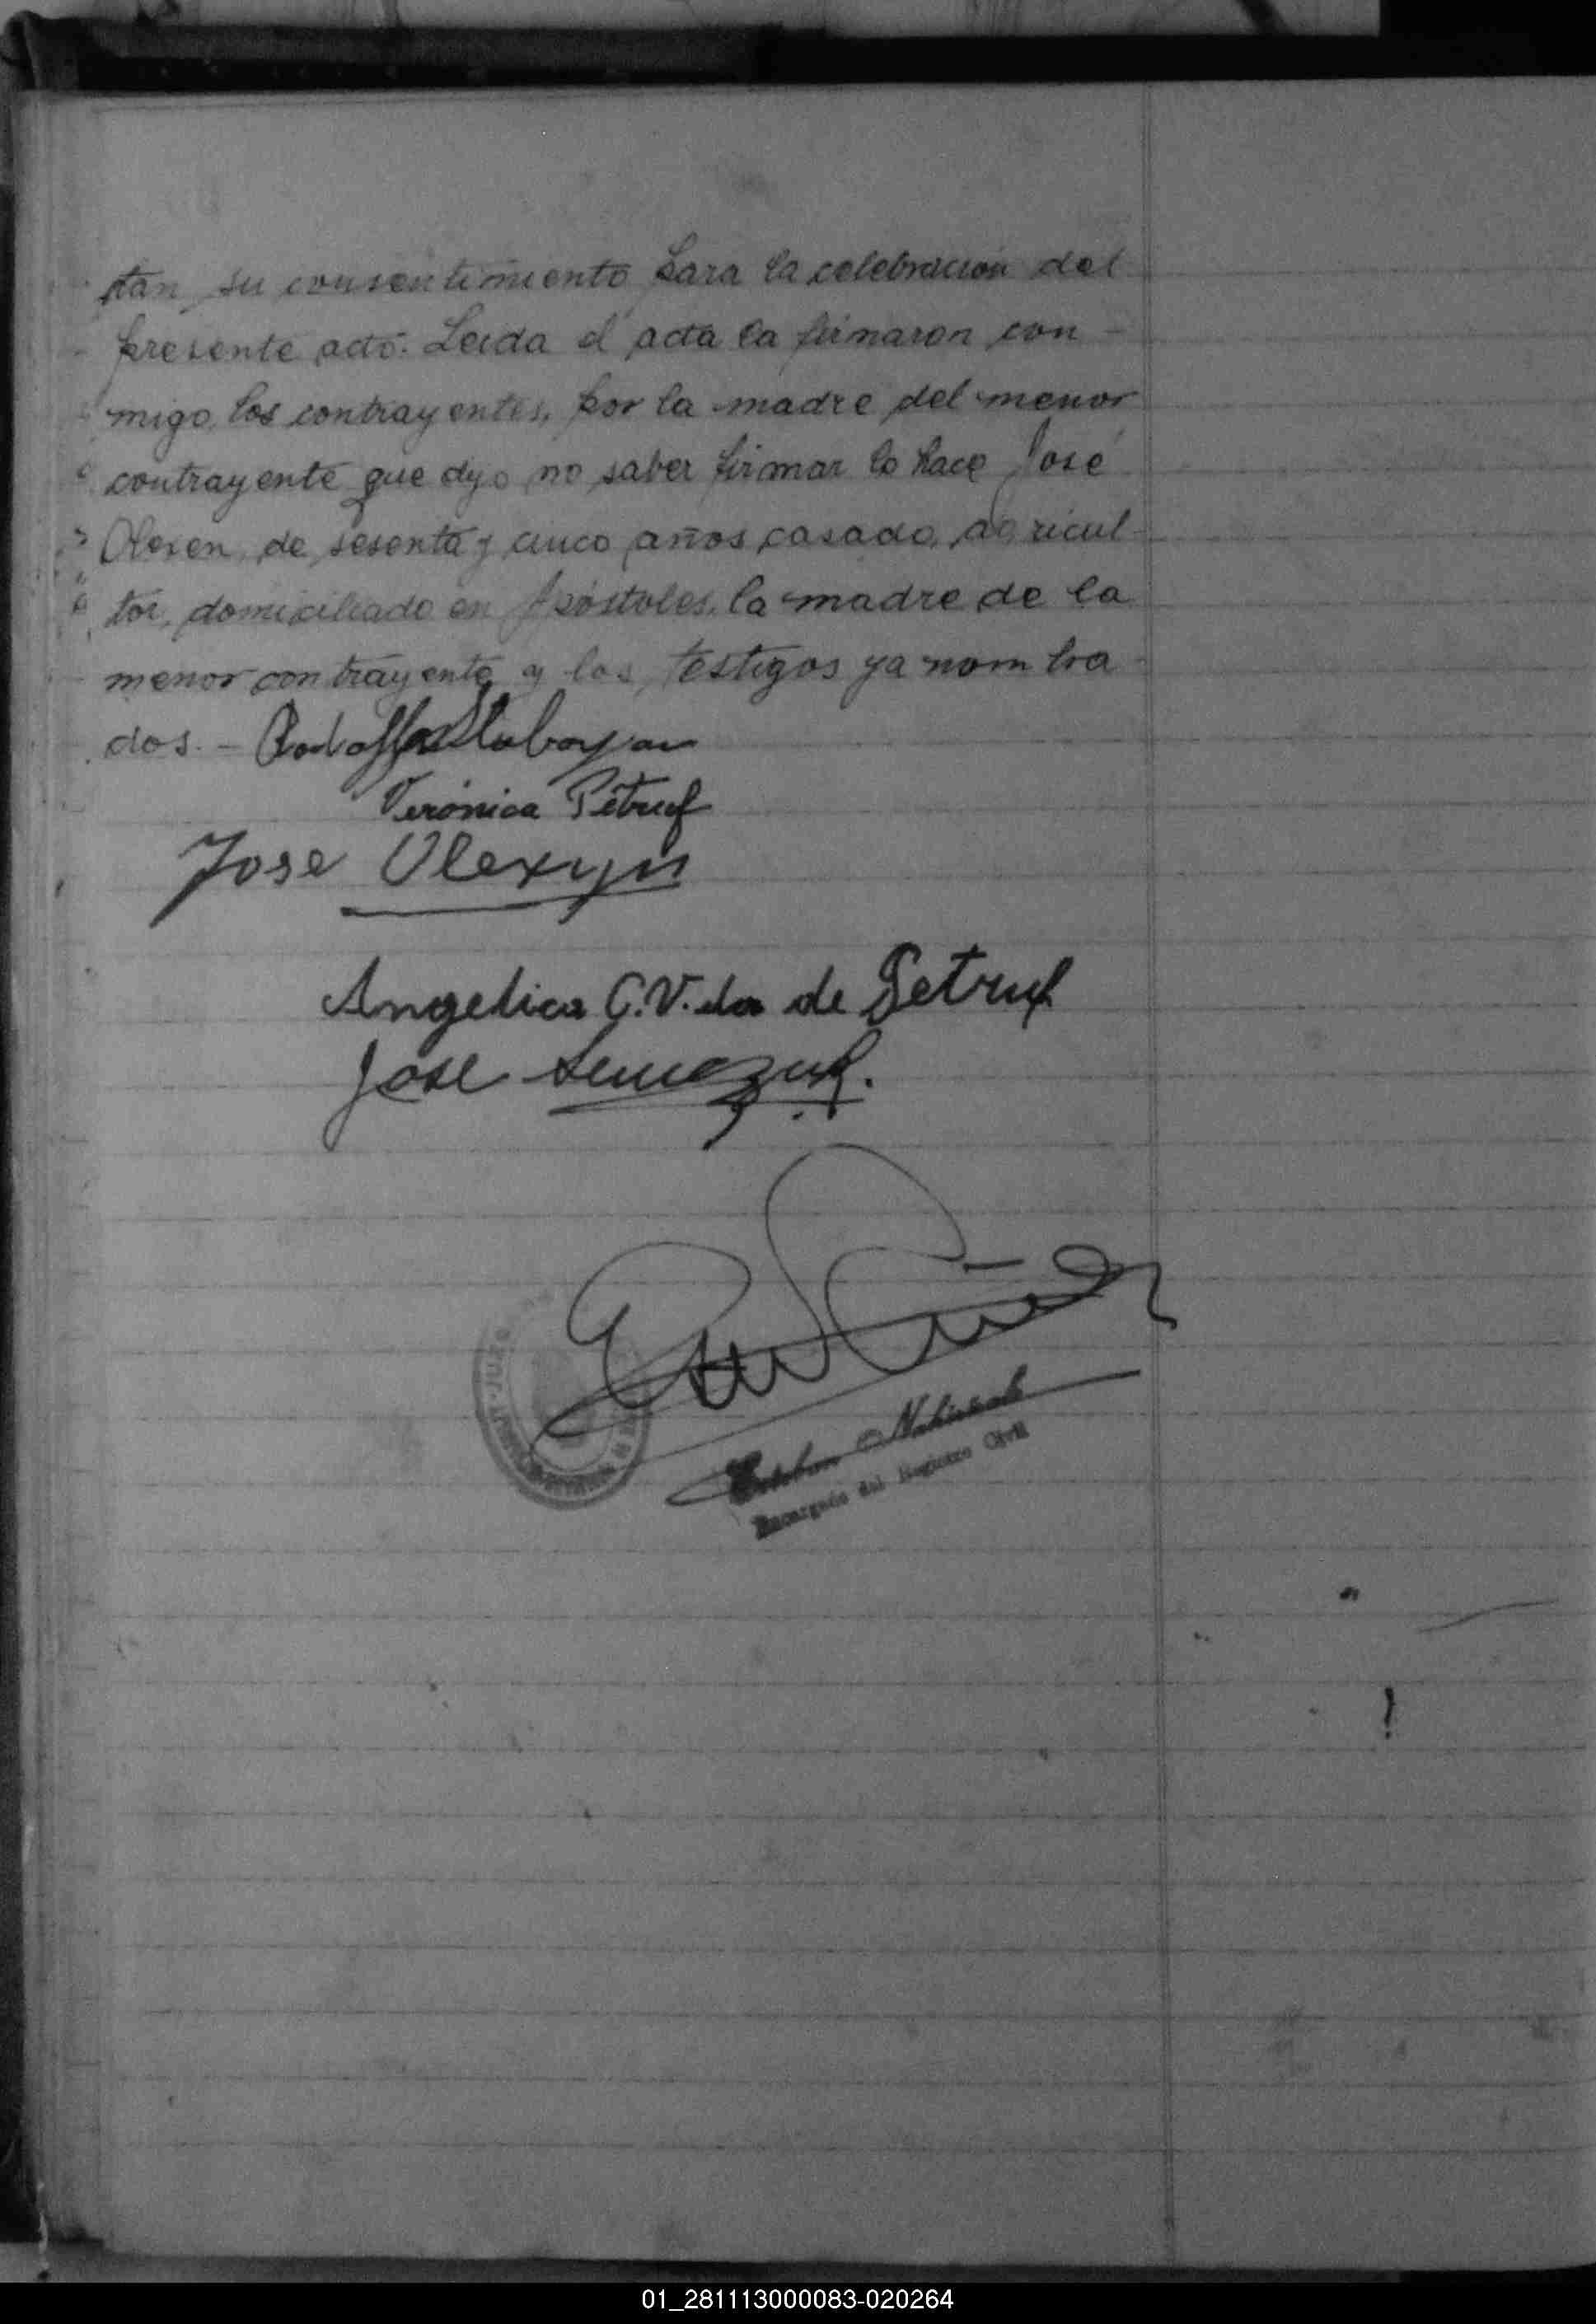 tan su consentimiento para la celebración del
presente acto. Leida el acta la firmaron con-
migo, los contrayentes, por la madre del menor
contrayente que dijo no saber firmar lo hace José
Olexen, de sesenta y cinco años, casado, agricul-
tor, domiciliado en Apóstoles, la madre de la
menor contrayente y los testigos ya nombra-
dos. - Rodolfo
Verónica Petruf
Jose Olexyn
Angelica C. V. da de Petruf
José
Esteban
Encargado del Registro Civil
01_281113000083-020264